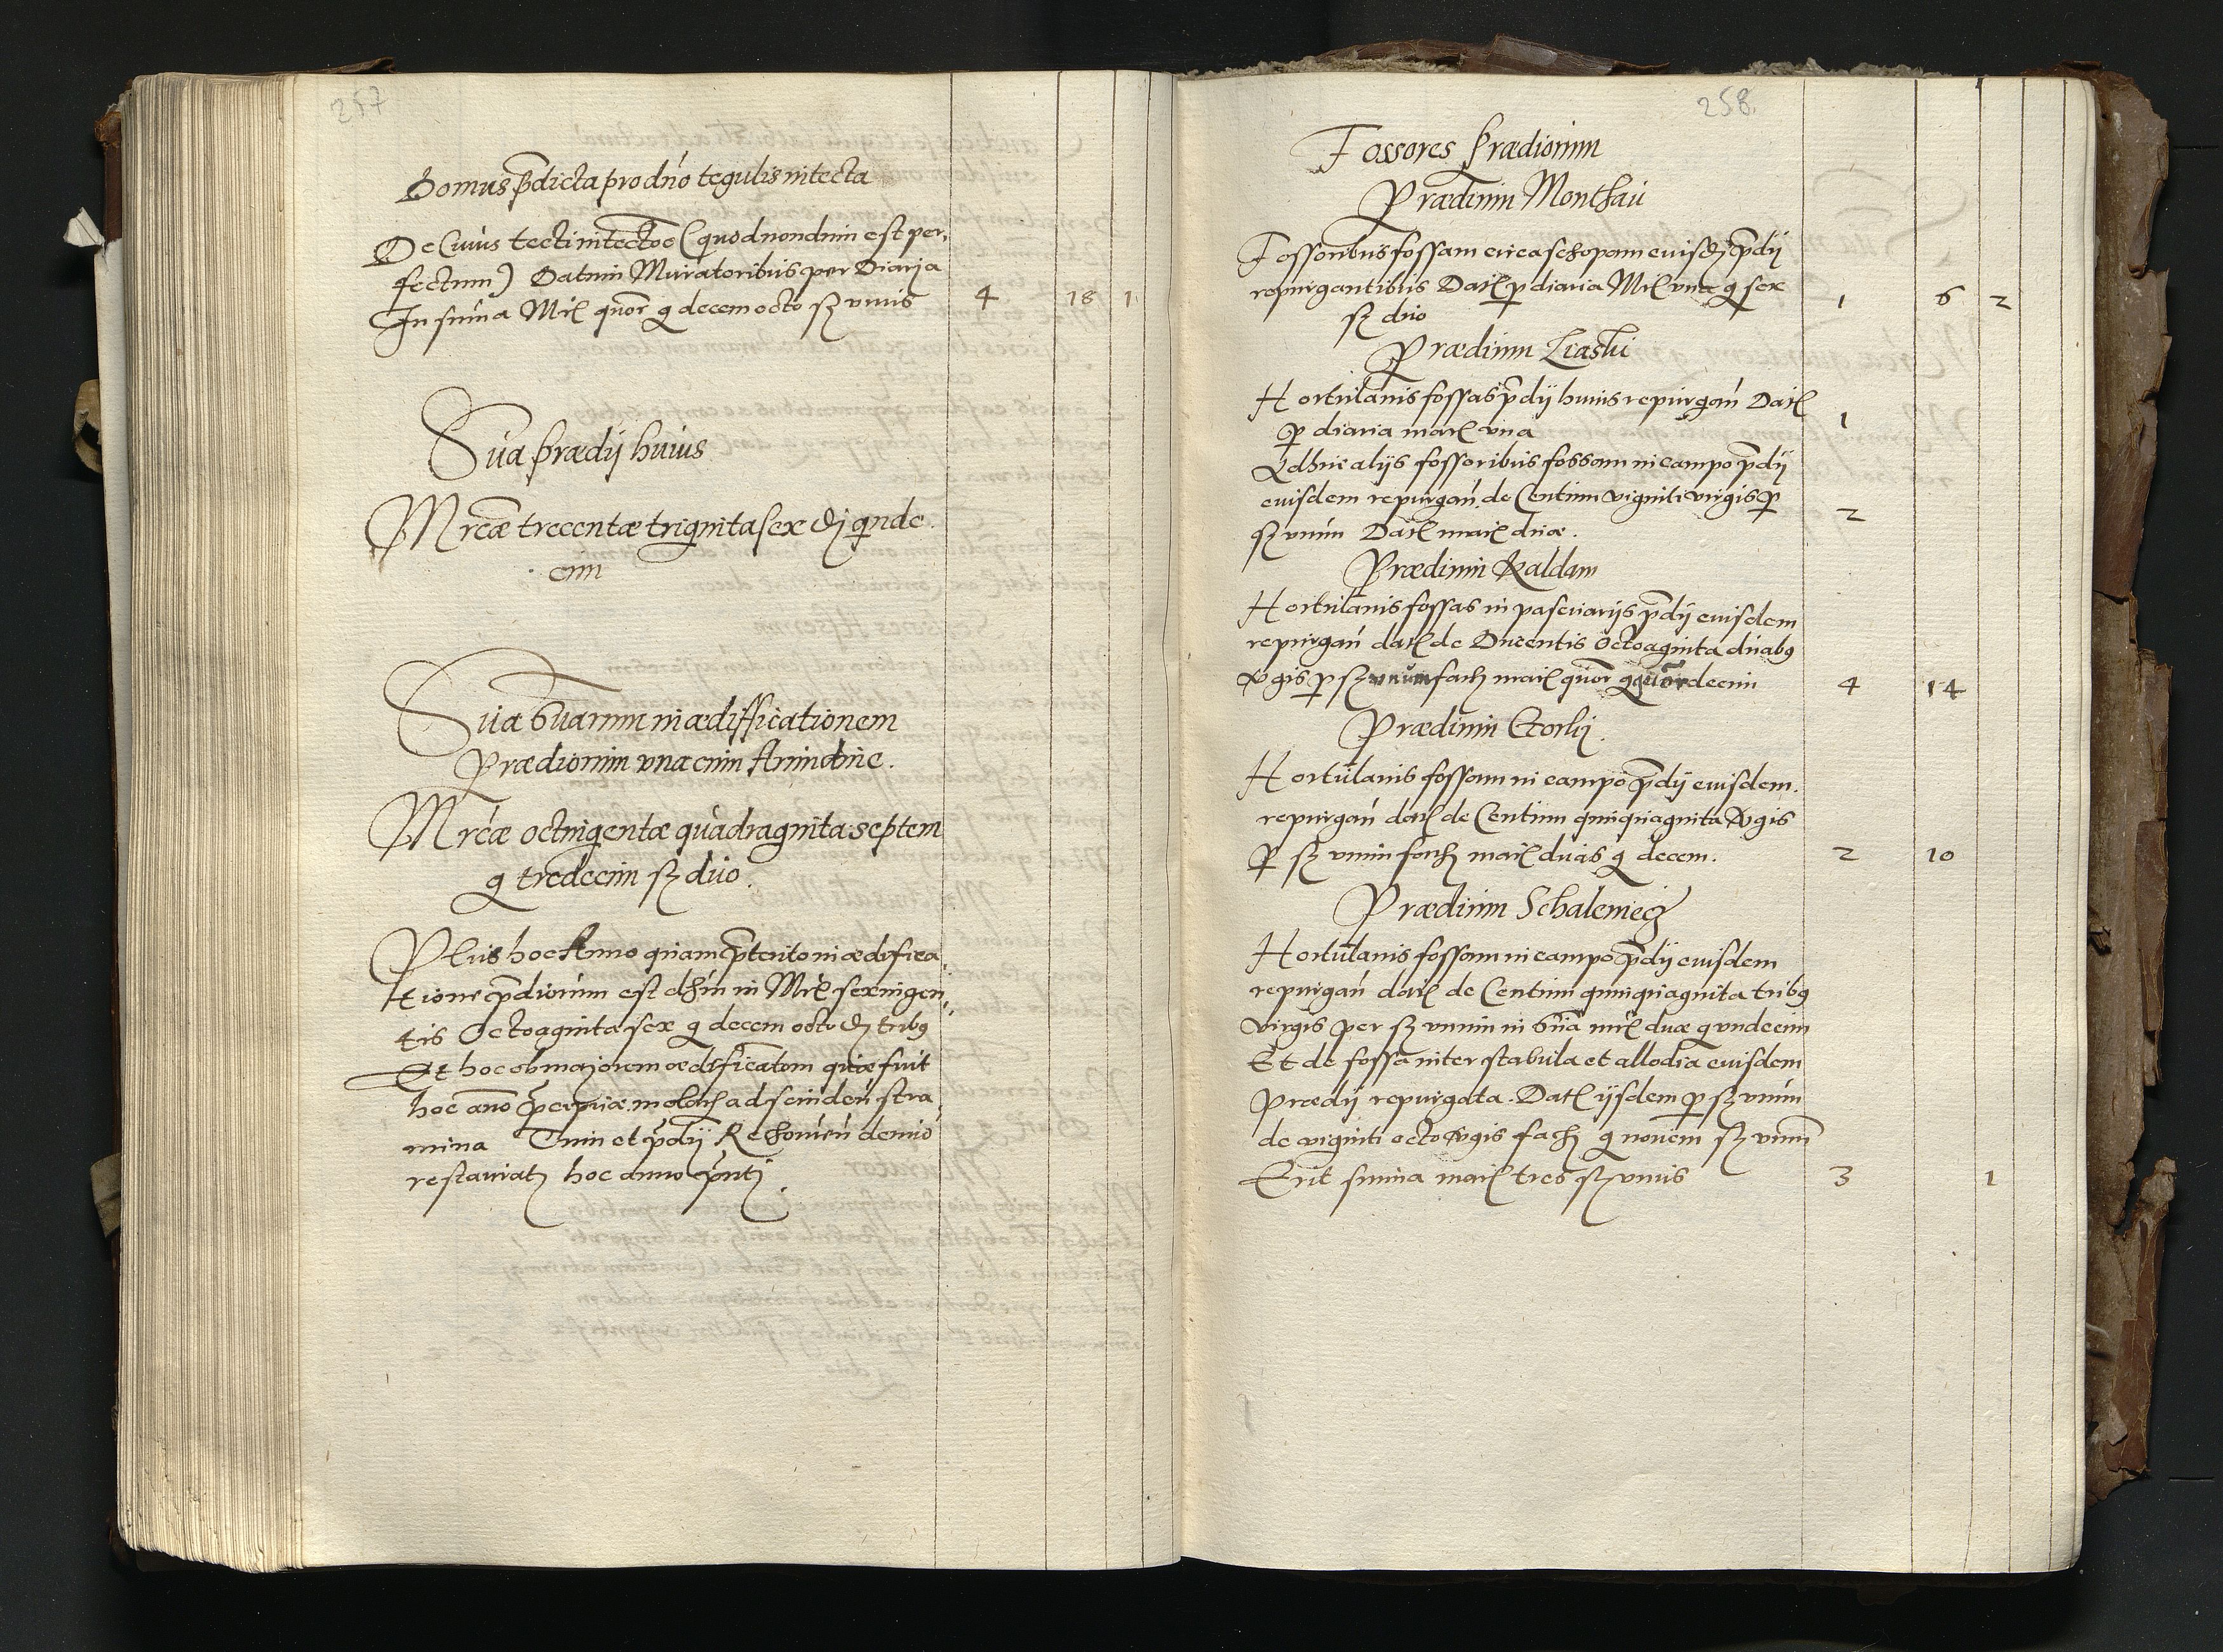 257
Domus p̄dicta pro dn̄o tegulis intecta
De Cuius tecti intectoē (quod nondum est per,
fectum) Datum Muratoribus per Diaria
In sum̄a Mrl̄ quor̄ g decem octo sȝ vnus 4 18 1
Sum̄a prædij huius
Mrcæ trecentæ triginta sex d̄j qinde
cim
Sum̄a Sum̄arum in ædifficationem
Prædiorum vna cum
Mrcæ octingentæ quadraginta septem
g tredecim sȝ duo.
Plus hoc Anno quam p̄terito in ædifica,
tione p̄diorum est in Mrl̄ sexingen,
tis Octoaginta sex g decem octo d̄j tribȝ
Et hoc ob majorem ædificatom quæ fuit
hoc an̄o molat̄ ad scinden̄ stra,
mina Tum et p̄dij denuo
restaurat̄ hoc anno p̄nti.
258
Fossores Prædiorum
Prædium Monthau
Fossoribus fossam circa schopam euisd̄j p̄dij
repurgantibus Datl̄ p diaria Mrl̄ vna g sex
sȝ duo 1 6 2
Prædium Liaski
Hortulanis fossas p̄dij huius repurgan̄ Datl̄
p diaria marl̄ vna 1
Adhuc alijs fossoribus fossam in campo p̄dij
euisdem repurgan̄ de Centum viginti virgis p
sȝ vnum Datl̄ marl̄ duæ. 2
Prædium Kaldam
Hortulanis fossas in pascuarijs p̄dij euisdem
repurgan̄ datl̄ de Ducentis Octoaginta duabȝ
v̄gis p sȝ vnum fach marl̄ quor̄ g quordecim 4 14
Prædium Gorki.
Hortulanis fossam in campo p̄dij euisdem.
repurgan̄ datl̄ de Centum quinquaginta v̄gis
p sȝ vnum fach marl̄ duas g decem. 2 10
Prædium Schalemiecz
Hortulanis fossam in campo p̄dij euisdem
repurgan̄ datl̄ de Centum quinquaginta tribȝ
virgis per sȝ vnum in sum̄a mrl̄ duæ g vndecim
Et de fossa inter stabula et allodia euisdem
Prædij repurgata. Datl̄ ijsdem p sȝ vnum
de viginti octo v̄gis fach g nouem sȝ vnum
Erit sum̄a marl̄ tres sȝ vnus 3 1